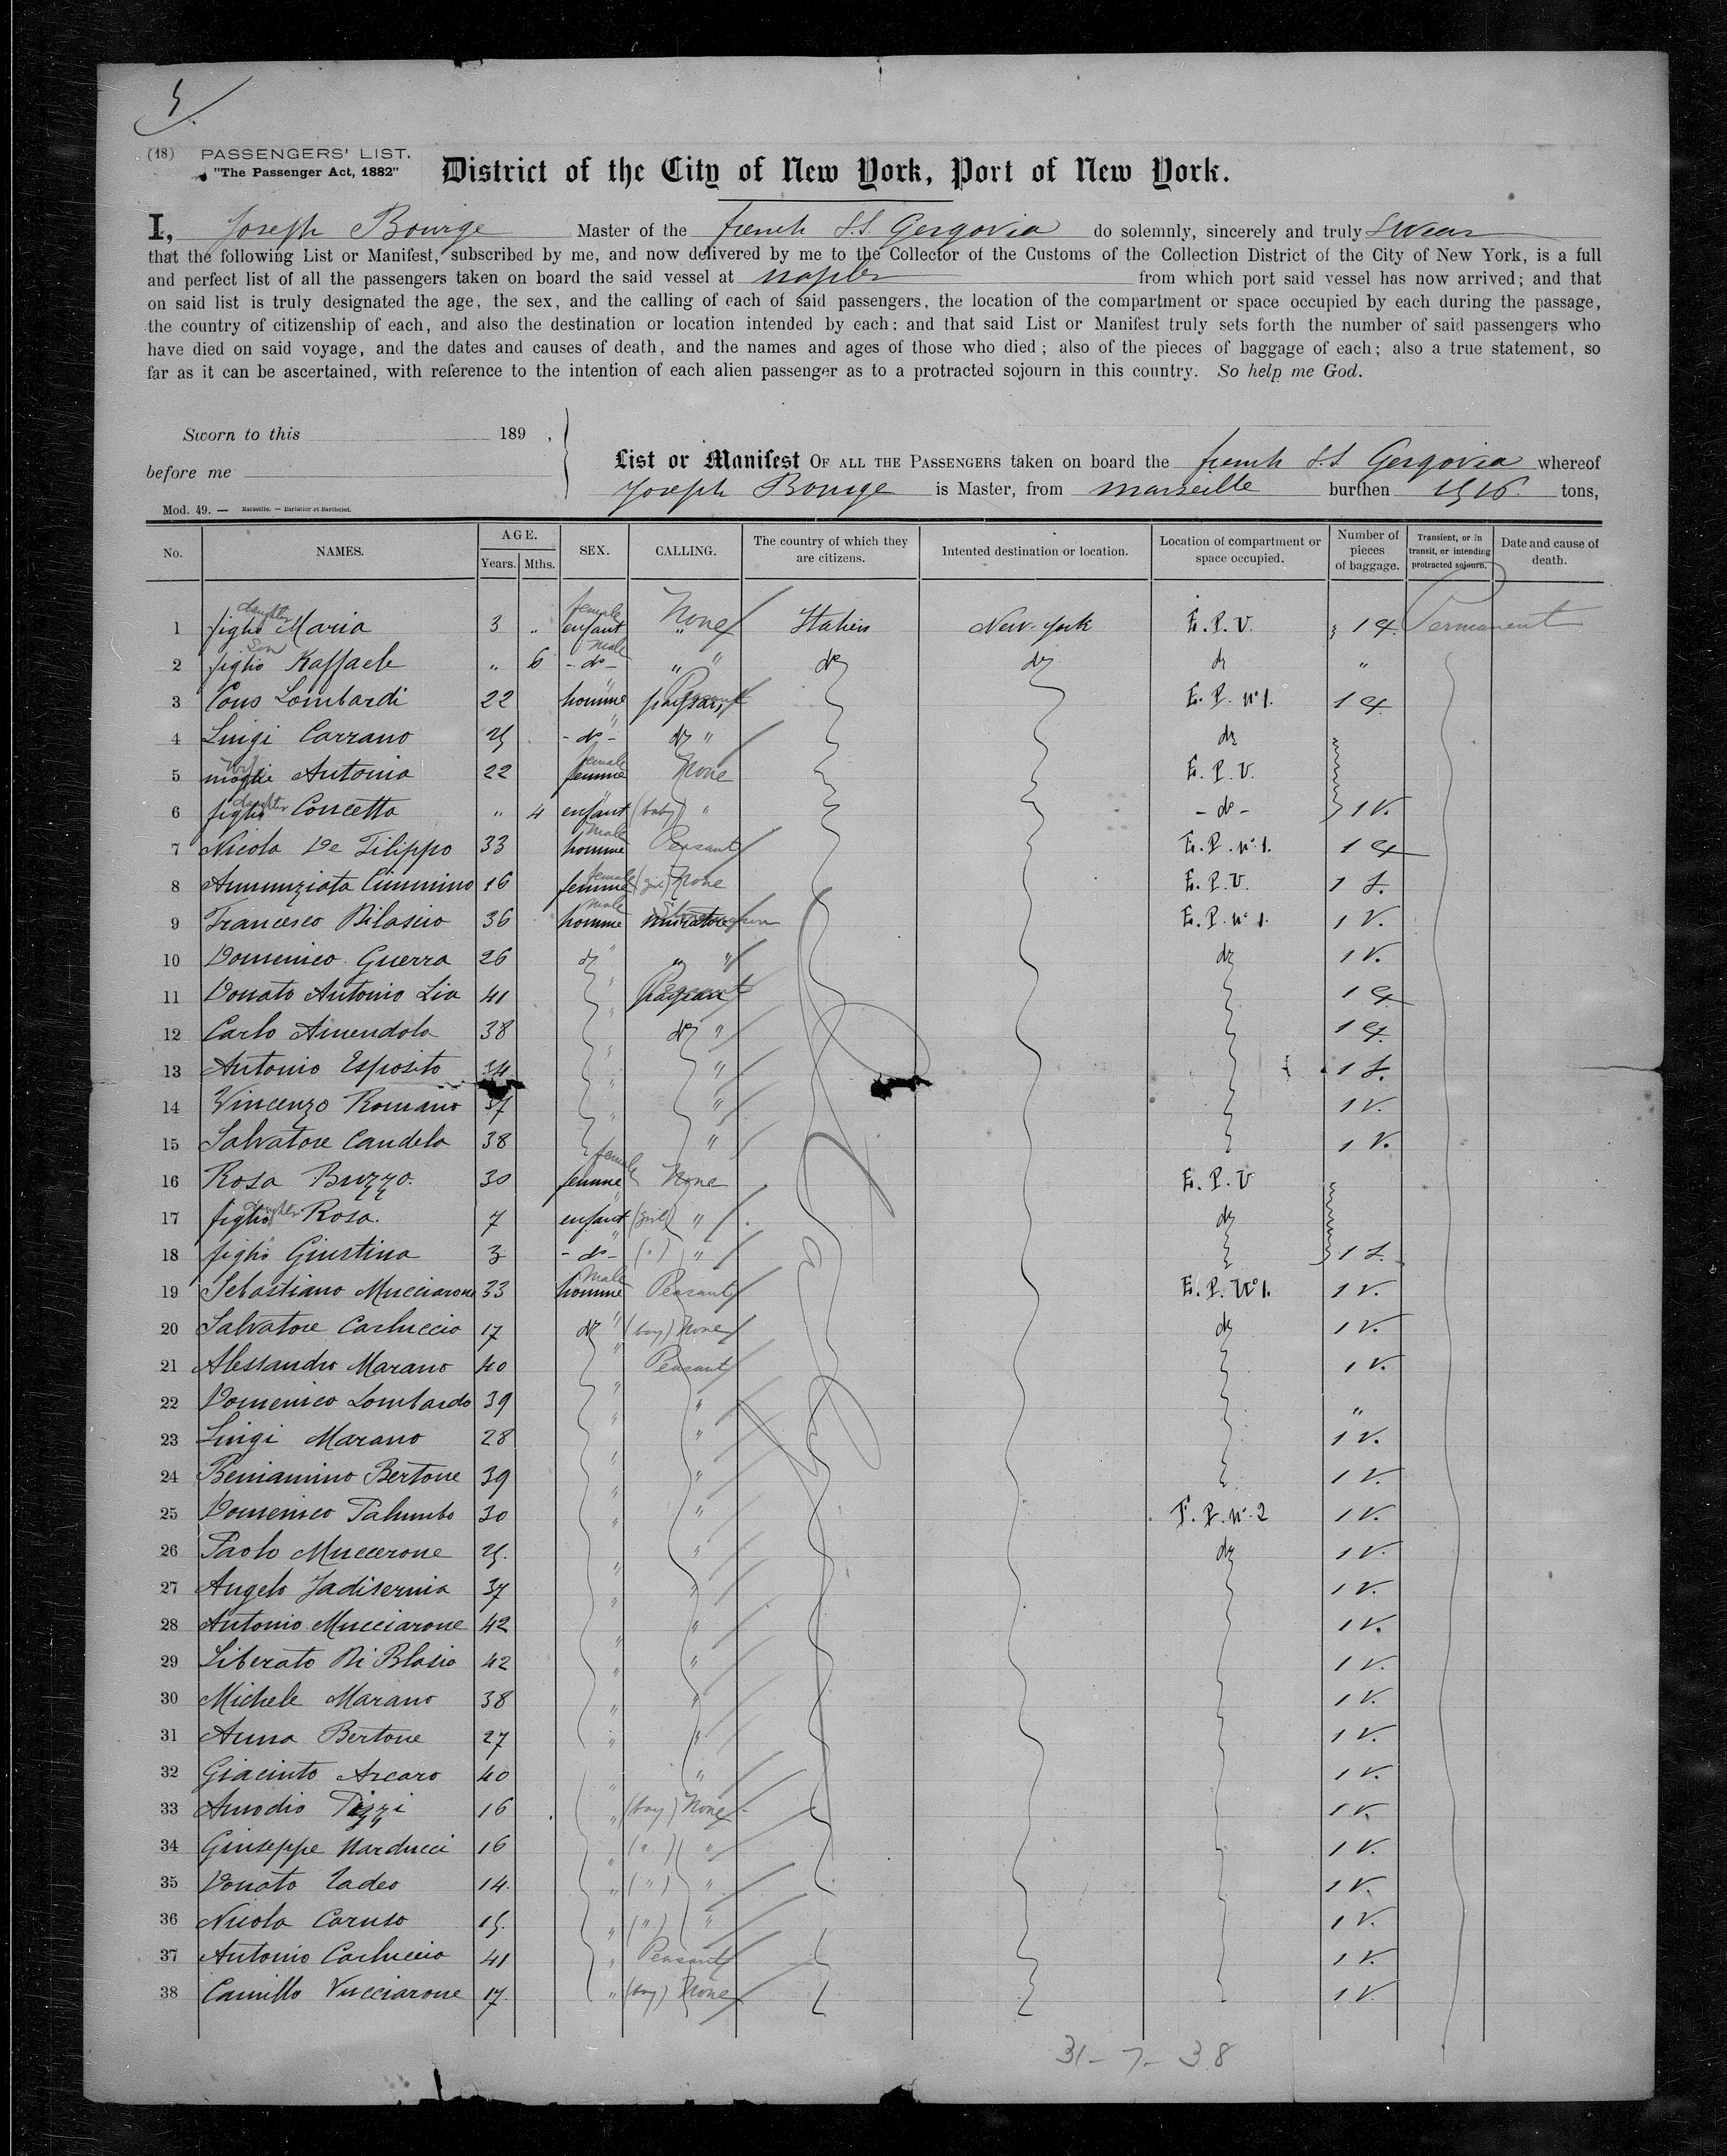 5
(18) PASSENGERS' LIST.
"The Passenger Act, 1882"
District of the City of New York, Port of New York.
I, Joseph Bourge Master of the french S.S. Gergovia do solemnly, sincerely and truly Swear
that the following List or Manifest, subscribed by me, and now delivered by me to the Collector of the Customs of the Collection District of the City of New York, is a full
and perfect list of all the passengers taken on board the said vessel at naples from which port said vessel has now arrived; and that
on said list is truly designated the age, the sex, and the calling of each of said passengers, the location of the compartment or space occupied by each during the passage,
the country of citizenship of each, and also the destination or location intended by each: and that said List or Manifest truly sets forth the number of said passengers who
have died on said voyage, and the dates and causes of death, and the names and ages of those who died; also of the pieces of baggage of each; also a true statement, so
far as it can be ascertained, with reference to the intention of each alien passenger as to a protracted sojourn in this country. So help me God.
Sworn to this 189 ,
before me
List or Manifest OF ALL THE PASSENGERS taken on board the french S.S. Gergovia whereof
Joseph Bourge is Master, from Marseille burthen 1516 tons,
Mod. 49. — Marseille. — Barlatier et Barthelet.
No. NAMES. AGE. Years. Mths. SEX. CALLING. The country of which they are citizens. Intented destination or location. Location of compartment or space occupied. Number of pieces of baggage. Transient, or in transit, or intending protracted sojourn. Date and cause of death.
1 figlia daughter Maria 3 " enfant female " None Italien New-york E.P.V. 1 Permanent
2 figlio Son Raffaele " 6 -do- male " " do do do "
3 Lombardi 22 homme " paysan Peasant E.P. n°1. 1
4 Luigi Carrano 25 -do- " do " do
5 moglie wife Antonia 22 femme female None E.P.V.
6 figlia daughter Concetta " 4 enfant " (baby) " -do- 1 V.
7 Nicola De Filippo 33 homme male Peasant E.P. n°1. 1
8 Annunziata Cimmino 16 femme female (girl) None E.P.V. 1 S.
9 Francesco Dilascio 36 homme male muratore E.P. n°1. 1 V.
10 Domenico Guerra 26 do " " " do 1 V.
11 Donato Antonio Lia 41 " paysan Peasant 1
12 Carlo Amendola 38 " do " 1
13 Antonio Esposito 34 " " 1 S.
14 Vincenzo Romano 37 " " 1 V.
15 Salvatore Candela 38 " 1 V.
16 Rosa Buzzo. 30 femme female None E.P.V
17 figlia daughter Rosa. 7 enfant " (girl) " do
18 figlia Giustina 3 -do- " (") " 1 S.
19 Sebastiano Mucciarone 33 homme male Peasant E.P. N°1. 1 V.
20 Salvatore Carluccio 17 do " (boy) None do 1 V.
21 Alessandro Marano 40 " Peasant 1 V.
22 Domenico Lombardo 39 " " "
23 Luigi Marano 28 " " 1 V.
24 Beniamino Bertone 39 " " 1 V.
25 Domenico Palumbo 30 " " F.P. n°.2 1 V.
26 Paolo Muccerone 25. " " do 1 V.
27 Angelo Jadisernia 37 " " 1 V.
28 Antonio Mucciarone 42 " " 1 V.
29 Liberato Di Blasio 42 " " 1 V.
30 Michele Marano 38 " " 1 V.
31 Anna Bertone 27 " " 1 V.
32 Giacinto Arcaro 40 " " 1 V.
33 Amodio Tizzi 16 " (boy) None 1 V.
34 Giuseppe Narducci 16 " (") " 1 V.
35 Donato Tadeo 14. " (") " 1 V.
36 Nicola Caruso 15. " (") " 1 V.
37 Antonio Carluccio 41 " Peasant 1 V.
38 Camillo Vucciarone 17. " (boy) None 1 V.
31-7-38